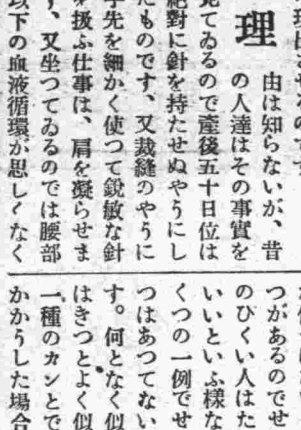 理
由は知らないが、昔
の人達はその事實を
見てゐるので產後五十日位は
絕對に針を持たせぬやうにし
たものです、又裁縫のやうに
手先を細かく使つて銳敏な針
を扱ふ仕事は、肩を凝らせま
す、又坐つてゐるのでは腰部
以下の血液循環が思しくなく
つがあるのでせ
のひくい人はた
いいといふ樣な
くつの一例でせ
つはあつてない
す。何となく似
はきつとよく似
一種のカンとで
かかうした場合